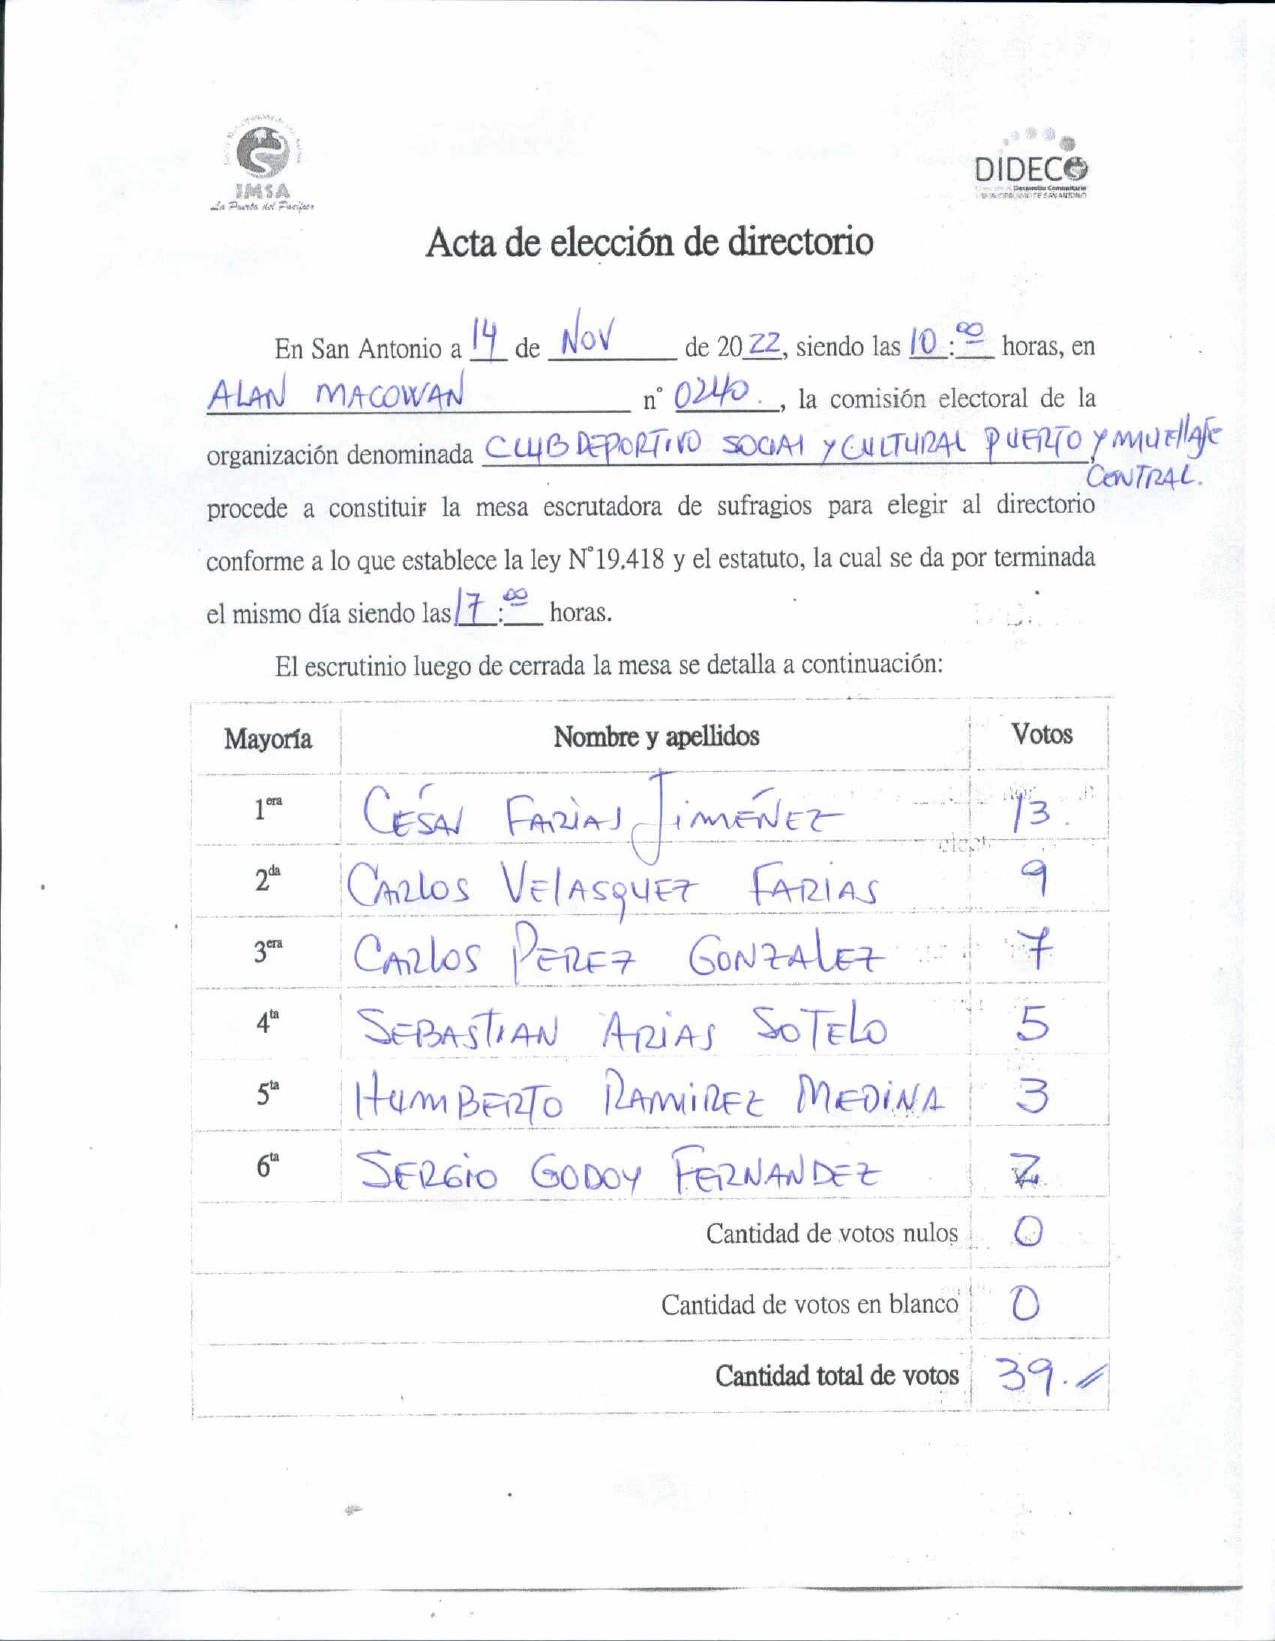 IMSA
La Puerta del Pacífico
DIDECO
Desarrollo Comunitario
Acta de elección de directorio
En San Antonio a 14 de Nov de 2022, siendo las 10:00 horas, en
ALAN MACOWAN n° 0240., la comisión electoral de la
organización denominada CLUB DEPORTIVO SOCIAL Y CULTURAL PUERTO Y MUELLAJE
CENTRAL.
procede a constituir la mesa escrutadora de sufragios para elegir al directorio
conforme a lo que establece la ley N°19.418 y el estatuto, la cual se da por terminada
el mismo día siendo las 17:00 horas.
El escrutinio luego de cerrada la mesa se detalla a continuación:
Mayoría Nombre y apellidos Votos
1era CÉSAR FARIAS JIMÉNEZ 13.
2da CARLOS VELASQUEZ FARIAS 9
3era CARLOS PEREZ GONZALEZ 7
4ta SEBASTIAN ARIAS SOTELO 5
5ta HUMBERTO RAMIREZ MEDINA 3
6ta SERGIO GODOY FERNANDEZ 2
Cantidad de votos nulos 0
Cantidad de votos en blanco 0
Cantidad total de votos 39.//